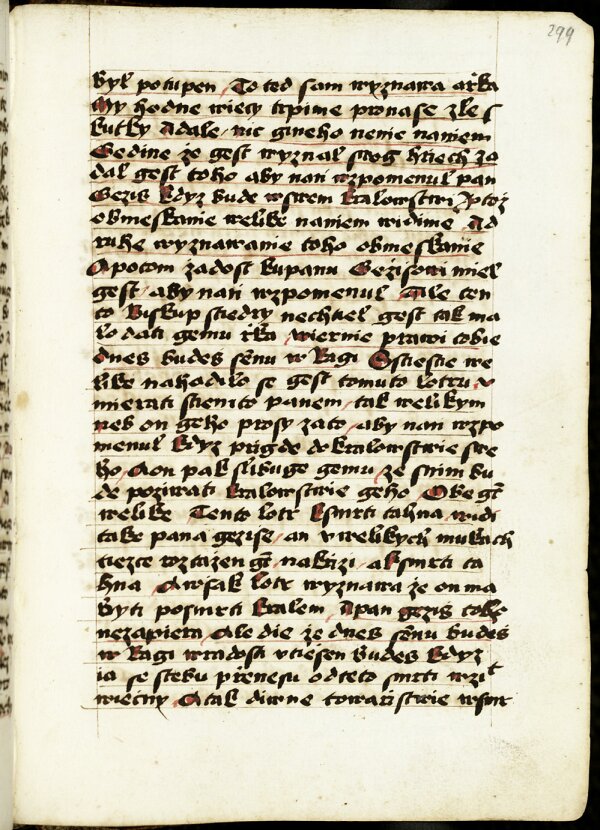 299
byl potupen / To ted sam wyznawa arzka
My hodne wiecy trpime pronase zle s
kutky Adale / nic gineho nenie naniem
Gedine ze gest wyznal swog hriech zo
dal gest toho aby nan wzpomenul pan
Gezis kdyz bude wswem kralowstwi
obmeskanie welike naniem widime / Ad
ruhe wyznawanie toho obmeskanie
Apotom zadost kupanu Gezisowi miel
gest / aby nan wzpomenul / Ale ten
to Biskup stiedry nechtiel gest tak ma
lo dati gemu rzka wiernie prawi tobie
dnes budes semnu w Ragi O stiestie we
like nahodilo se gest tomuto lotru v
mierati stiemto panem / tak welikym
neb on geho prosy zato / aby nan wzpo
menul kdyz prigde dokralowstwie swe
ho / Aon pak slibuge gemu / ze snim bu
de poziwati kralowstwie geho / Obe gt
welike Tento lotr ksmrti tahna widi
take pana gezise / an vwelikych mukach
tiezce roztazen gt nakrizi / aksmrti ta
hna / Awsak lotr wyznawa ze on ma
byti posmrti kralem / Apan gezis toho
nezapiera / Ale die ze dnes semnu budes
w Ragi wradosti vtiesen Budes kdyz
ia se stebu prenesu odteto smrti
wiecny / Atak diwne towarzistwie wsmr